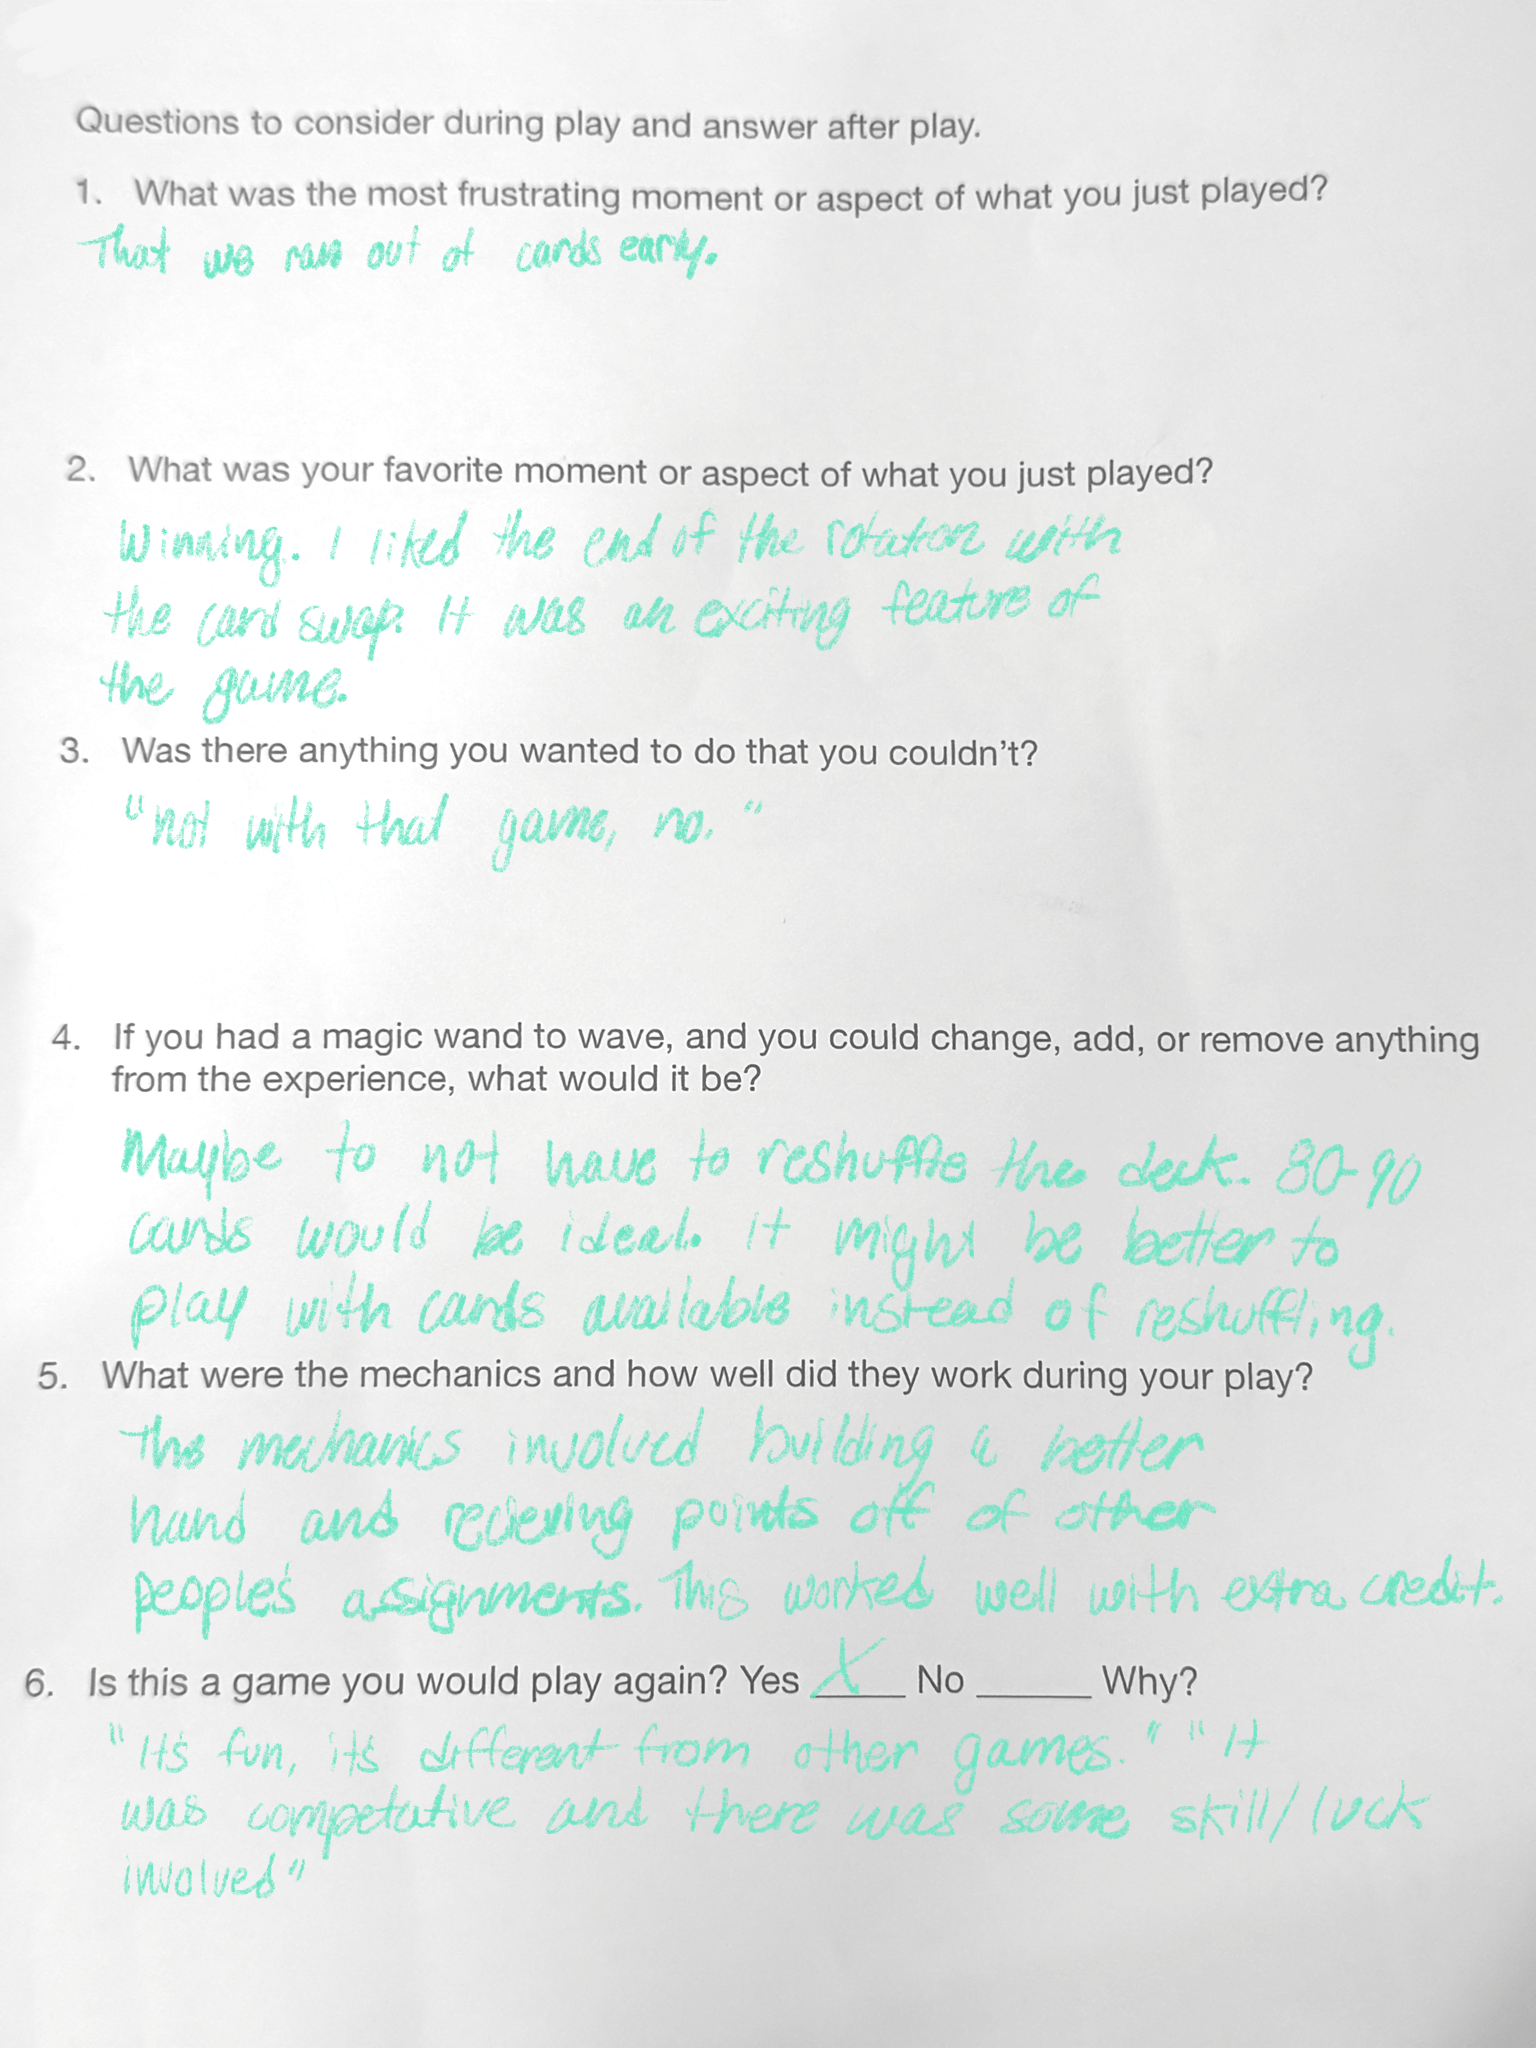 Questions to consider during play and answer after play.
1. What was the most frustrating moment or aspect of what you just played?
That we ran out of cards early.
2. What was your favorite moment or aspect of what you just played?
Winning. I liked the end of the rotation with
the card swap. It was an exciting feature of
the game.
3. Was there anything you wanted to do that you couldn't?
"not with that game, no."
4. If you had a magic wand to wave, and you could change, add, or remove anything
from the experience, what would it be?
Maybe to not have to reshuffle the deck. 80-90
cards would be ideal. it might be better to
play with cards available instead of reshuffling.
5. What were the mechanics and how well did they work during your play?
The mechanics involved building a better
hand and recieving points off of other
people's assignments. This worked well with extra credit.
6. Is this a game you would play again? Yes X No ______ Why?
"It's fun, it's different from other games." "It
was competative and there was some skill/luck
involved"